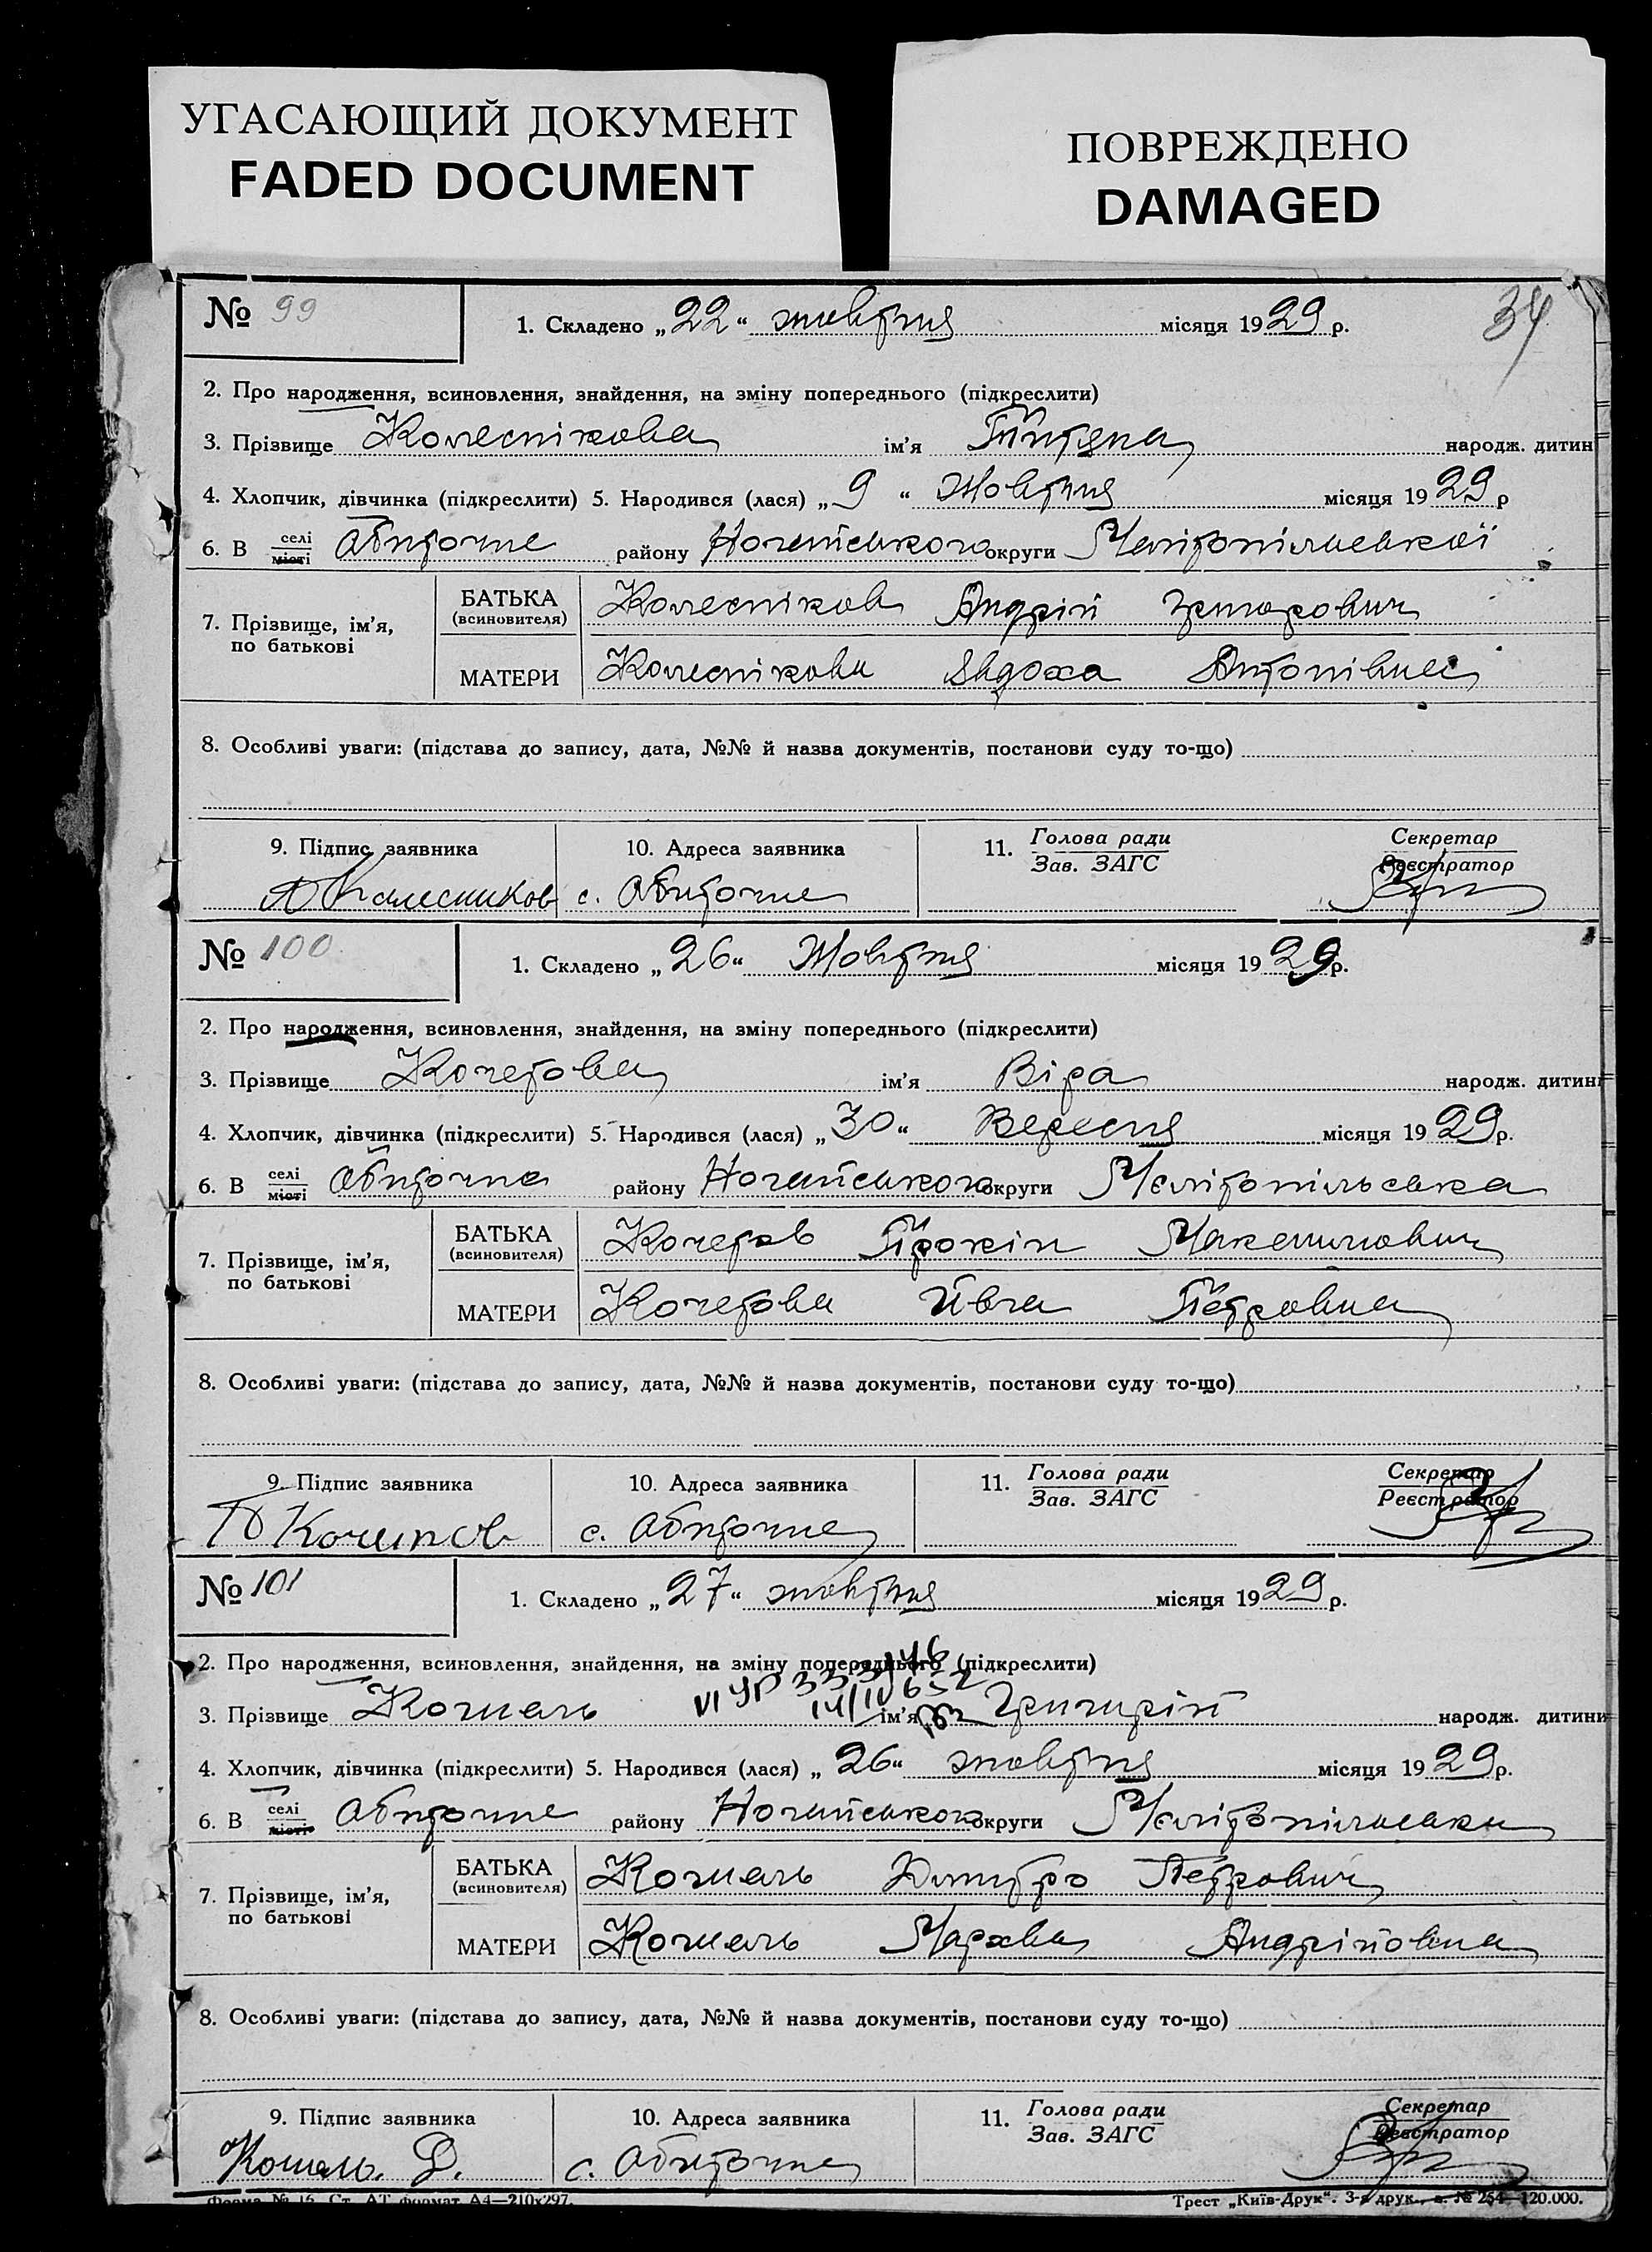 УГАСАЮЩИЙ ДОКУМЕНТ
FADED DOCUMENT
ПОВРЕЖДЕНО
DAMAGED
№ 99
1. Складено „22“ жовтня місяця 1929 р.
34
2. Про народження, всиновлення, знайдення, на зміну попереднього (підкреслити)
3. Прізвище Колеснікова ім’я Тітяна народж. дитин
4. Хлопчик, дівчинка (підкреслити) 5. Народився (лася) „9“ Жовтня місяця 1929 р
6. В селі місті Обиточне району Ногайського округи Мелітопільської
7. Прізвище, ім’я, по батькові
БАТЬКА (всиновителя) Колесніков Андрій Григорович
МАТЕРИ Колеснікова Явдоха Антонівна
8. Особливі уваги: (підстава до запису, дата, №№ й назва документів, постанови суду то-що)
9. Підпис заявника 10. Адреса заявника 11. Голова ради Зав. ЗАГС Секретар Реєстратор
А Калесников с. Обиточне
№ 100
1. Складено „26“ Жовтня місяця 1929 р.
2. Про народження, всиновлення, знайдення, на зміну попереднього (підкреслити)
3. Прізвище Кочетова ім’я Віра народж. дитини
4. Хлопчик, дівчинка (підкреслити) 5. Народився (лася) „30“ Вересня місяця 1929 р.
6. В селі місті Обиточна району Ногайського округи Мелітопільська
7. Прізвище, ім’я, по батькові
БАТЬКА (всиновителя) Кочетов Прокіп Макситович
МАТЕРИ Кочетова Ивга Петровна
8. Особливі уваги: (підстава до запису, дата, №№ й назва документів, постанови суду то-що)
9. Підпис заявника 10. Адреса заявника 11. Голова ради Зав. ЗАГС Секретар Реєстратор
П Кочитов с. Обиточне
№ 101
1. Складено „27“ жовтня місяця 1929 р.
2. Про народження, всиновлення, знайдення, на зміну попереднього (підкреслити)
VI УР 333146
14/IV 652
3. Прізвище Кошель ім’я Григорій народж. дитини
4. Хлопчик, дівчинка (підкреслити) 5. Народився (лася) „26“ жовтня місяця 1929 р.
6. В селі місті Обиточне району Ногайського округи Мелітопільська
7. Прізвище, ім’я, по батькові
БАТЬКА (всиновителя) Кошель Дмитро Петрович
МАТЕРИ Кошель Мархва Андрійовна
8. Особливі уваги: (підстава до запису, дата, №№ й назва документів, постанови суду то-що)
9. Підпис заявника 10. Адреса заявника 11. Голова ради Зав. ЗАГС Секретар Реєстратор
Кошель. Д. с. Обиточне
Форма № 16. Ст. АТ формат А4—210х297.
Трест „Київ-Друк“. 3-я друк., з. № 254—120.000.